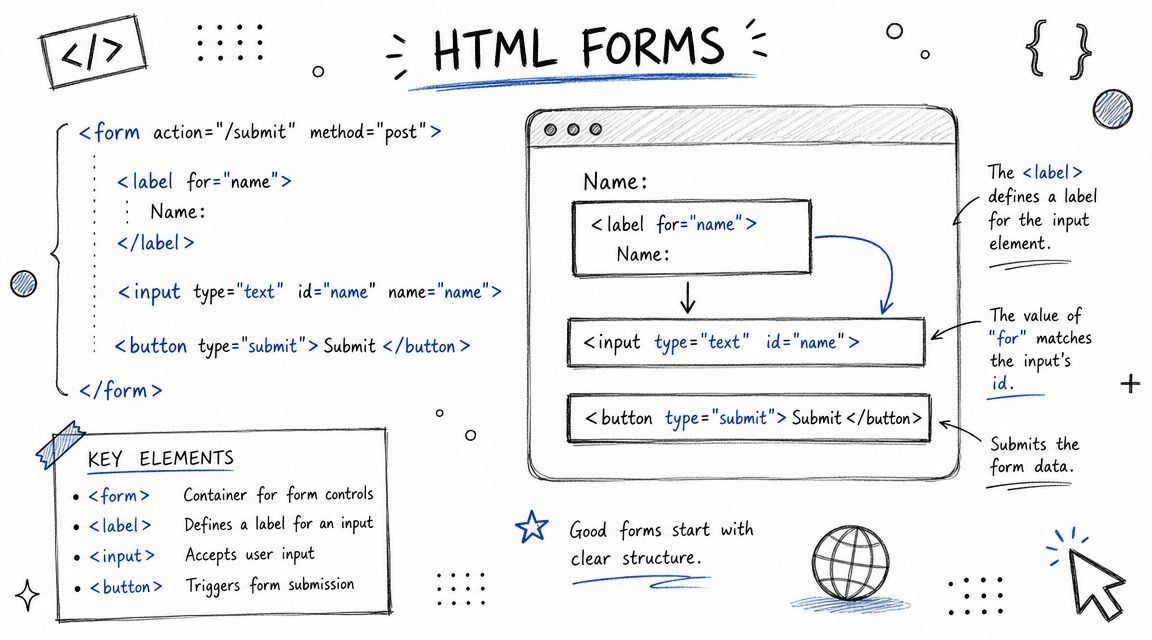 </>
HTML FORMS
{ }
<form action="/submit" method="post">
<label for="name">
Name:
</label>
<input type="text" id="name" name="name">
<button type="submit"> Submit </button>
</form>
KEY ELEMENTS
• <form> Container for form controls
• <label> Defines a label for an input
• <input> Accepts user input
• <button> Triggers form submission
Name:
<label for="name">
Name:
<input type="text" id="name">
<button type="submit"> Submit </button>
The <label>
defines a label
for the input
element.
The value of
"for" matches
the input's
id.
Submits the
form data.
Good forms start with
clear structure.